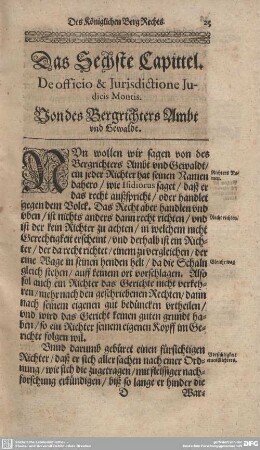 Des Königlichen Berg Reches.
25
Das Sechste Capittel.
De officio & Jurjsdictione Ju-
dicis Montis.
Von des Bergrichters Ambt
vnd Gewalde.
NVn wollen wir sagen von des
Bergrichters Ambt vnd Gewaldt/
ein jeder Richter hat seinen Namen
dahero/ wie Isidorus saget/ daß er
das recht außspricht/ oder handlet
gegen dem Volck. Das Recht aber handlen vnd
vben/ ist nichts anders dann recht richten/ vnd
ist der kein Richter zu achten/ in welchem nicht
Gerechtigkeit erscheint/ vnd derhalb ist ein Rich-
ter/ der da recht richtet/ einem zu vergleichen/ der
eine Wage in seinen henden helt/ da die Schaln
gleich stehen/ auff keinem ort vorschlagen. Al-
sol auch ein Richter das Gerichte nicht verkeh-
ren/ mehr nach den geschriebenen Rechten/ dann
nach seinem eigenen gut bedüncken vrtheilen/
vnd wird das Gericht keinen guten grund ha-
ben/ so ein Richter seinem eigenen Kopff im Ge-
richte folgen wil.
Vnnd darumb gebüret einen fürsichtigen
Richter/ daß er sich aller sachen nach einer Ord-
nung/ wie sich die zugetragen/ mit fleissiger nach-
forschung erkündigen/ biß so lange er hinder die
D
War-
Richters Na-
Recht richten.
Gleichnuß